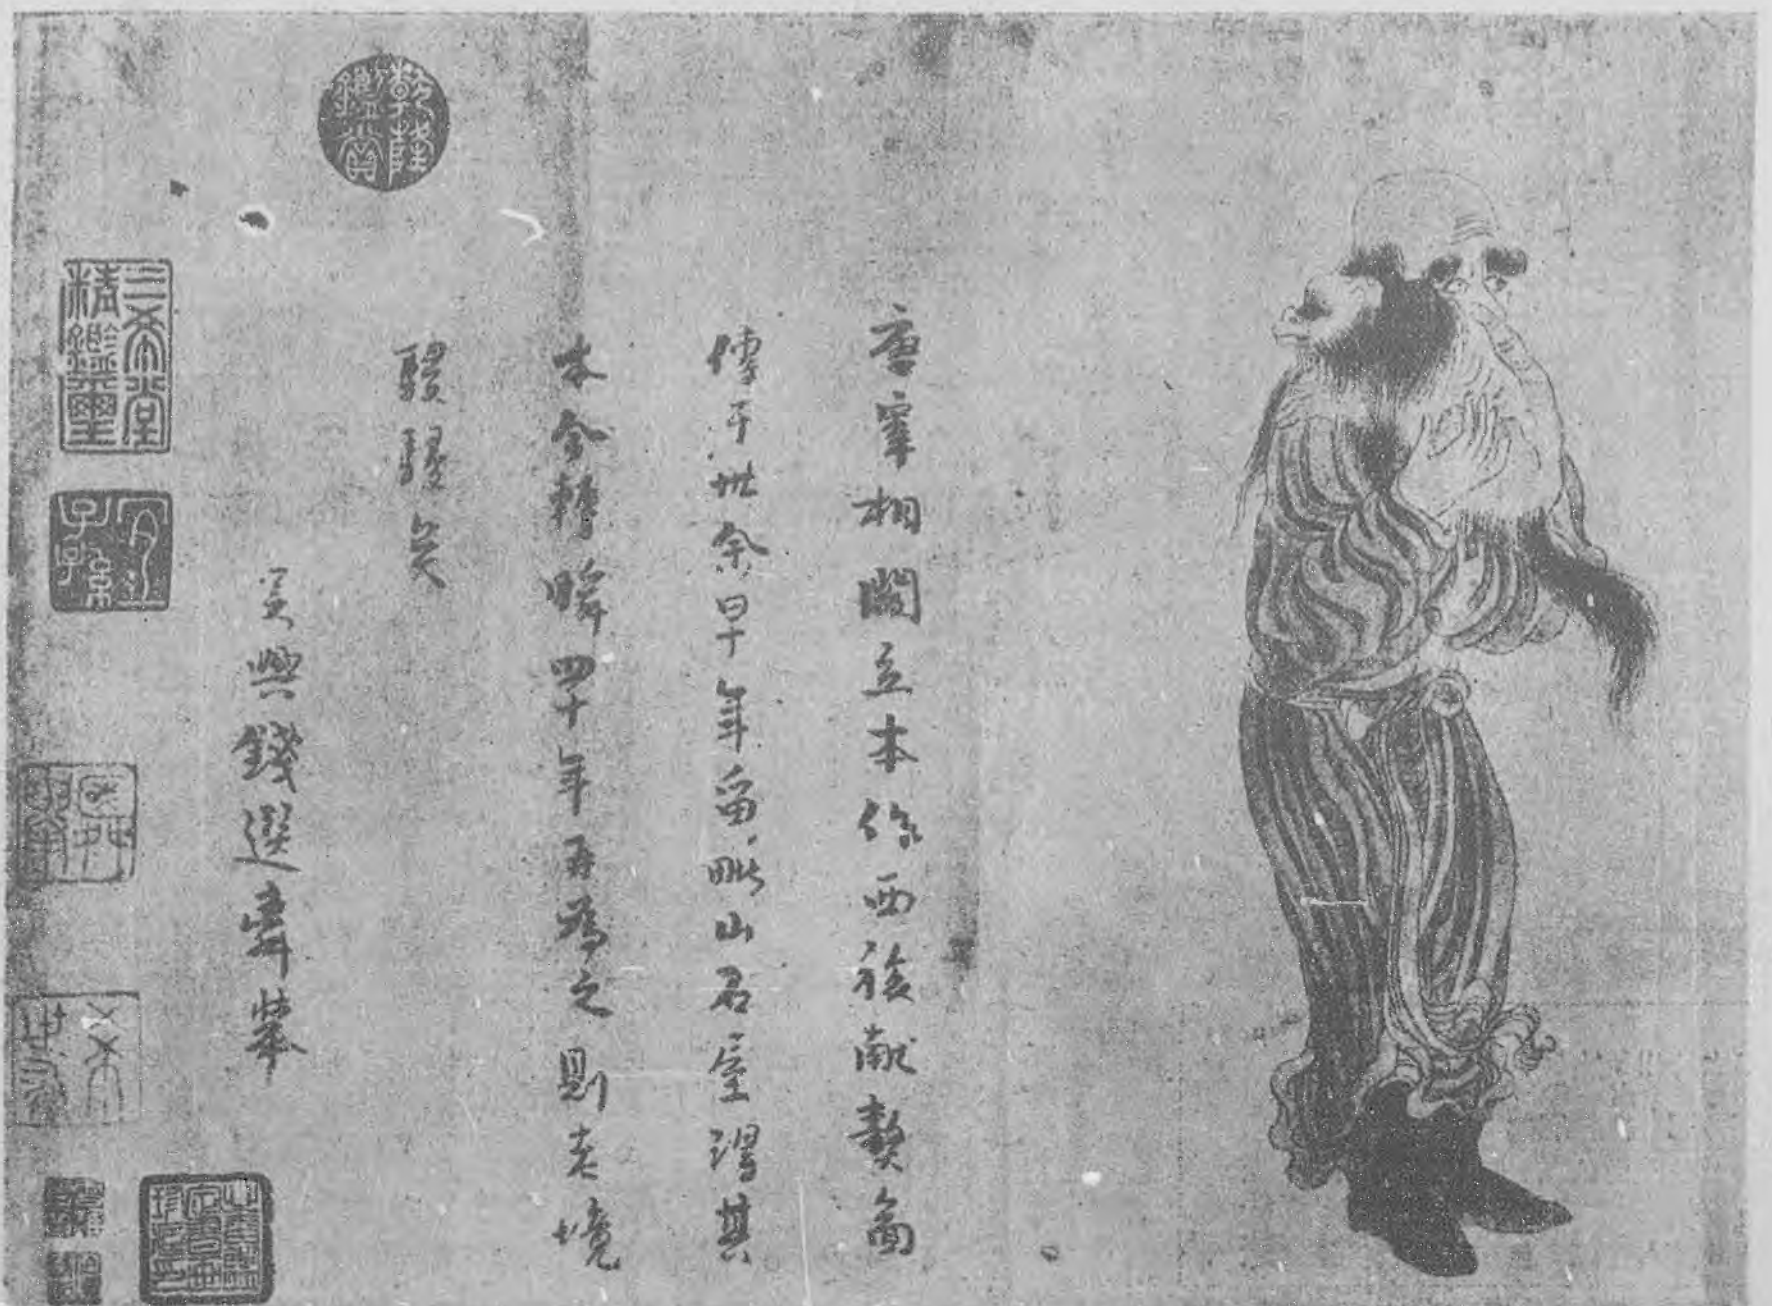 唐宰相閻立本作西旅獻獒啚
傳于世余早年留毗山石屋得其
本今轉瞬四十年再爲之則老境
駸駸矣
吳興錢選舜舉
乾隆鑑賞
三希堂精鑑璽
宜子孫